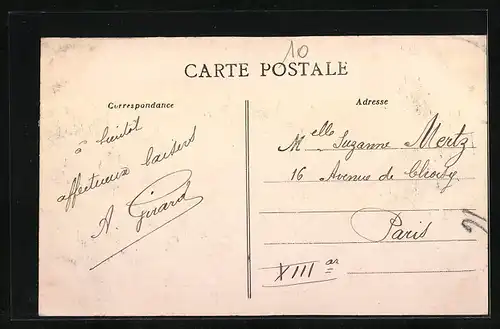 10
CARTE POSTALE
Correspondance
à bientôt
affectueux baisers
A. Girard
Adresse
Melle Suzanne Mertz
16 Avenue de Choisy
Paris
XIII ar